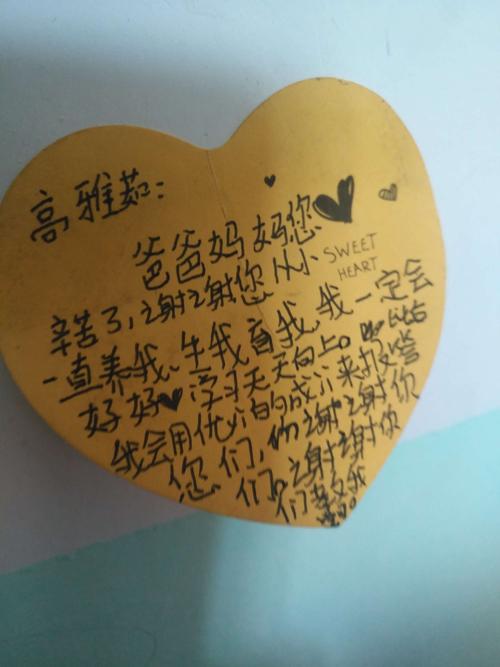 高雅茹:
爸爸妈妈您
SWEET
HEART
辛苦了,谢谢您从小
一直养我、生我育我,我一定会
好好学习天天向上。
我会用优的成来报答
您们,谢谢你
们。谢谢你
们教我